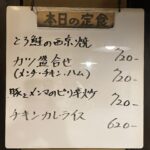 本日の定食
とろ鮭の西京焼 720-
カツ盛合せ 720-
(メンチ・チキン・ハム)
豚とメンマのピリ辛炒め 720-
チキンカレーライス 620-